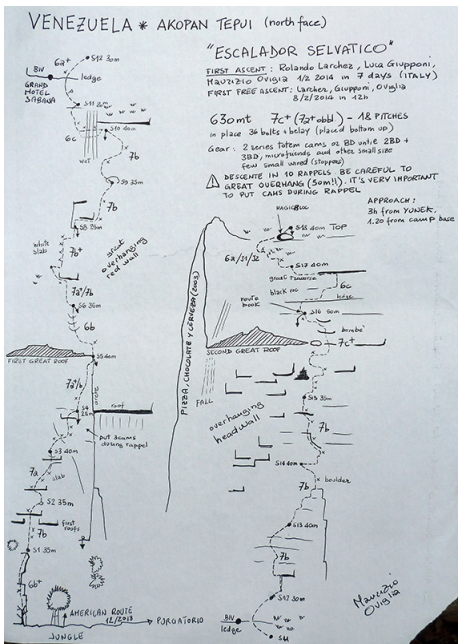 VENEZUELA * AKOPAN TEPUI (north face)
"ESCALADOR SELVATICO"
FIRST ASCENT: Rolando Larcher, Luca Giupponi,
Maurizio Oviglia 1/2 2014 in 7 days (ITALY)
FIRST FREE ASCENT: Larcher, Giupponi, Oviglia
8/2/2014 in 12h
630mt 7c+ (7a+obbl) - 18 PITCHES
in place 36 bolts + belay (placed bottom up)
Gear: 2 series totem cams or BD until 2BD +
3BD, microfriends and other small size
few small wired (stoppers)
DESCENTE IN 10 RAPPELS. BE CAREFUL TO
GREAT OVERHANG (50m!!). IT'S VERY IMPORTANT
TO PUT CAMS DURING RAPPEL
APPROACH:
3h from YUNEK,
1.20 from camp base
S12 30m
6a+
BIV
ledge
GRAND
HOTEL
SABANA
6c
wet
S10 40m
7b
S9 35m
7b
S8 25m
white
slab
7b+
great
overhanging
red wall
7a+/7b
S6 35m
6b
FIRST GREAT ROOF
S5 40m
7a+/b
S4
25m
roof
put 3cams
during rappel
S3 40m
7a
slab
S2 35m
7b
first
roofs
S1 35m
6b+
AMERICAN ROUTE
12/2013
PURGATORIO
JUNGLE
PIZZA, CHOCOLATE Y CERVEZA (2003)
MAGIC BLOC
S18 40m TOP
6a/S1/S2
S17 40m
great traverse
black roof
6c
route
book
S16 50m
bombè
7c+
SECOND GREAT ROOF
FALL
S15 35m
overhanging
headwall
7b
S14 40m
boulder
7b
S13 40m
7b
S12 30m
BIV
ledge
S11
Maurizio
Oviglia